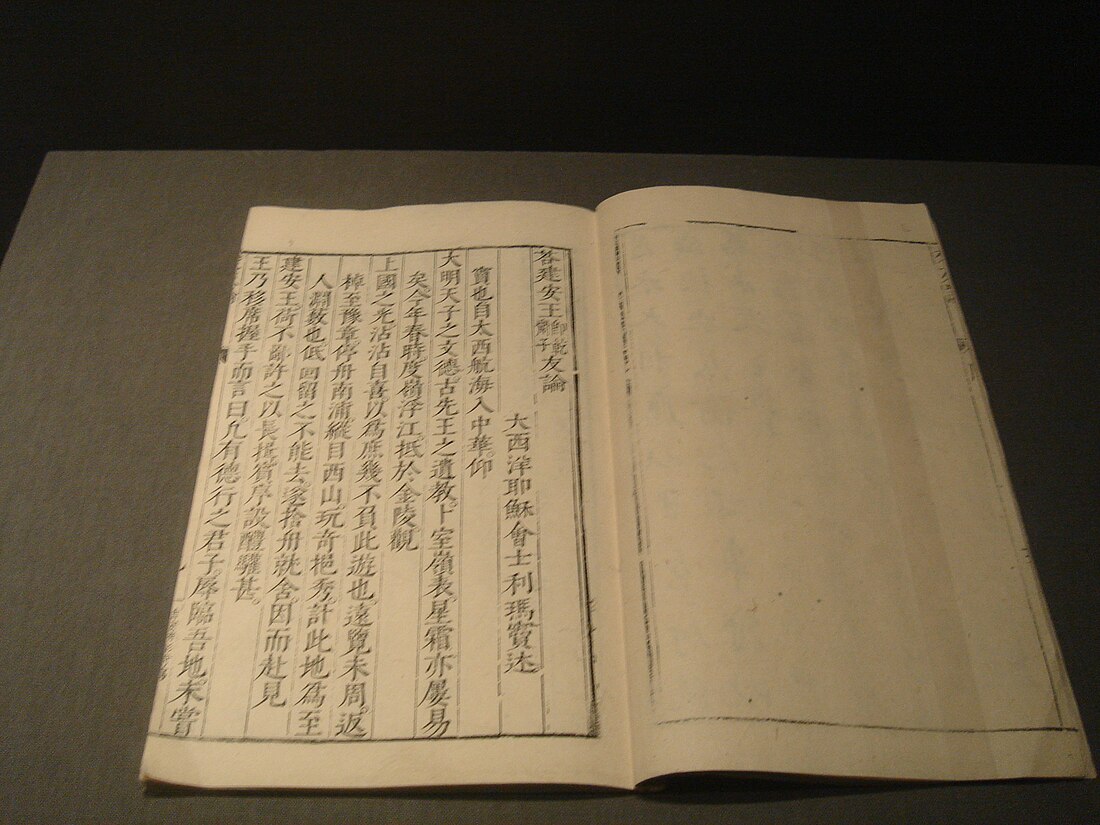 答建安王友論
大西洋耶穌會士利瑪竇述
竇也自太西航海入中華仰
大明天子之文德古先王之遺教。卜室嶺表星霜亦屢易
矣今年春時度嶺浮江。抵於金陵。觀
上國之光沾沾自喜以為庶幾不負此遊也。遠覽未周。返
棹至豫章停舟南浦縱目西山。玩奇挹秀計此地為至
人淵藪也低回留之不能去。遂捨舟就舍。因而赴見
建安王。荷不鄙許之以長揖賓序設醴驩甚。
王乃移席握手而言曰。凡有德行之君子。辱臨吾地。未嘗